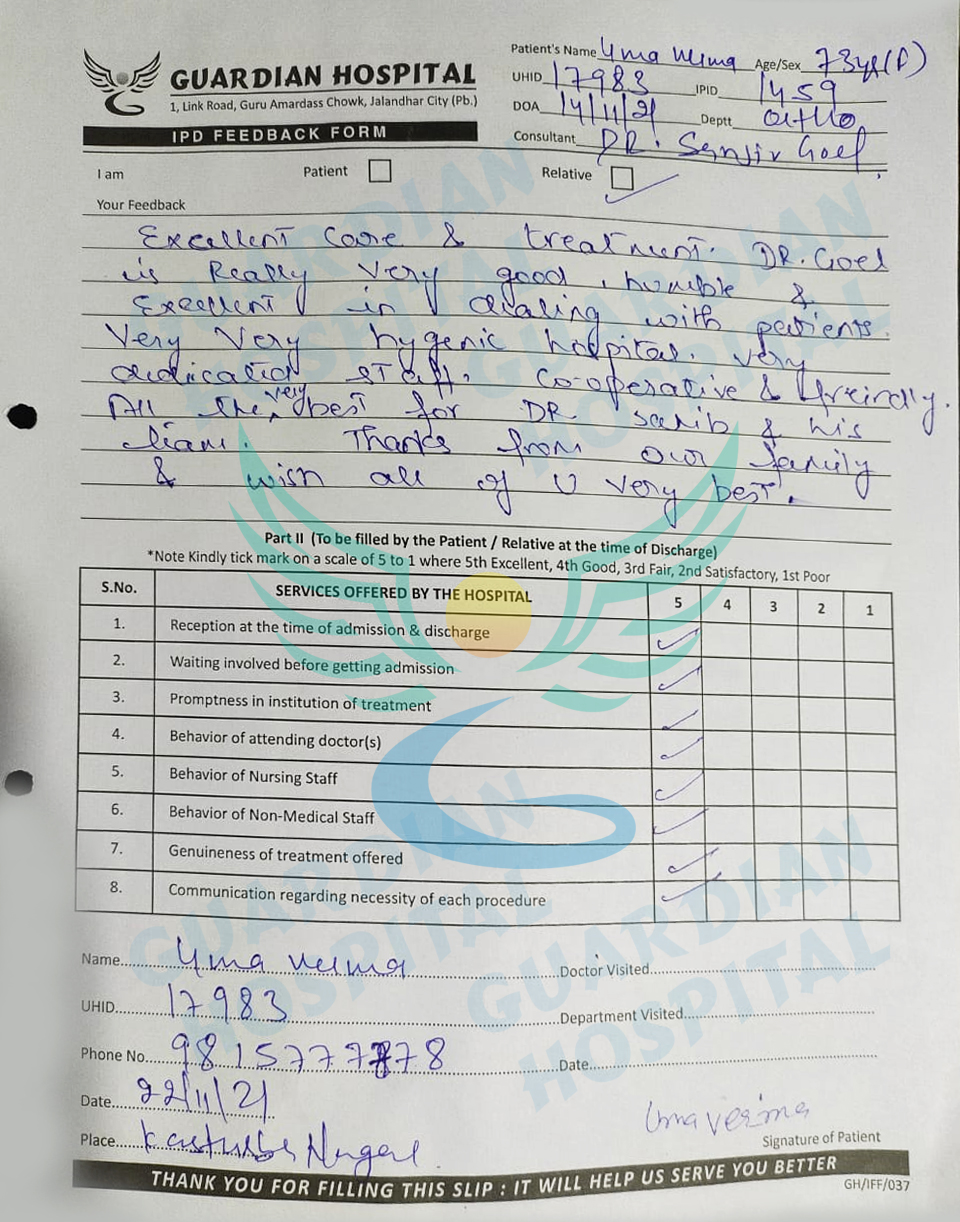 GUARDIAN HOSPITAL
1, Link Road, Guru Amardass Chowk, Jalandhar City (Pb.)
IPD FEEDBACK FORM
Patient's Name Uma Verma Age/Sex 73yr(F)
UHID 17983 IPID 1459
DOA 14/11/21 Deptt Ortho
Consultant DR. Sanjiv Goel
I am Patient Relative
Your Feedback
Excellent Care & treatment. DR. Goel
is Really very good, humble &
Excellent in dealing with patients.
Very Very hygenic hospital. very
dedicated staff. Co-operative & freindly.
All the very best for DR sahib & his
team. Thanks from our family
& wish all of U very best.
Part II (To be filled by the Patient / Relative at the time of Discharge)
*Note Kindly tick mark on a scale of 5 to 1 where 5th Excellent, 4th Good, 3rd Fair, 2nd Satisfactory, 1st Poor
S.No. SERVICES OFFERED BY THE HOSPITAL 5 4 3 2 1
1. Reception at the time of admission & discharge
2. Waiting involved before getting admission
3. Promptness in institution of treatment
4. Behavior of attending doctor(s)
5. Behavior of Nursing Staff
6. Behavior of Non-Medical Staff
7. Genuineness of treatment offered
8. Communication regarding necessity of each procedure
Name Uma Verma Doctor Visited
UHID 17983 Department Visited
Phone No. Date
Date 22/11/21
Place Kasturba Nagar.
Uma Verma
Signature of Patient
THANK YOU FOR FILLING THIS SLIP : IT WILL HELP US SERVE YOU BETTER
GH/IFF/037
GUARDIAN HOSPITAL
GUARDIAN HOSPITAL
GUARDIAN HOSPITAL
GUARDIAN HOSPITAL